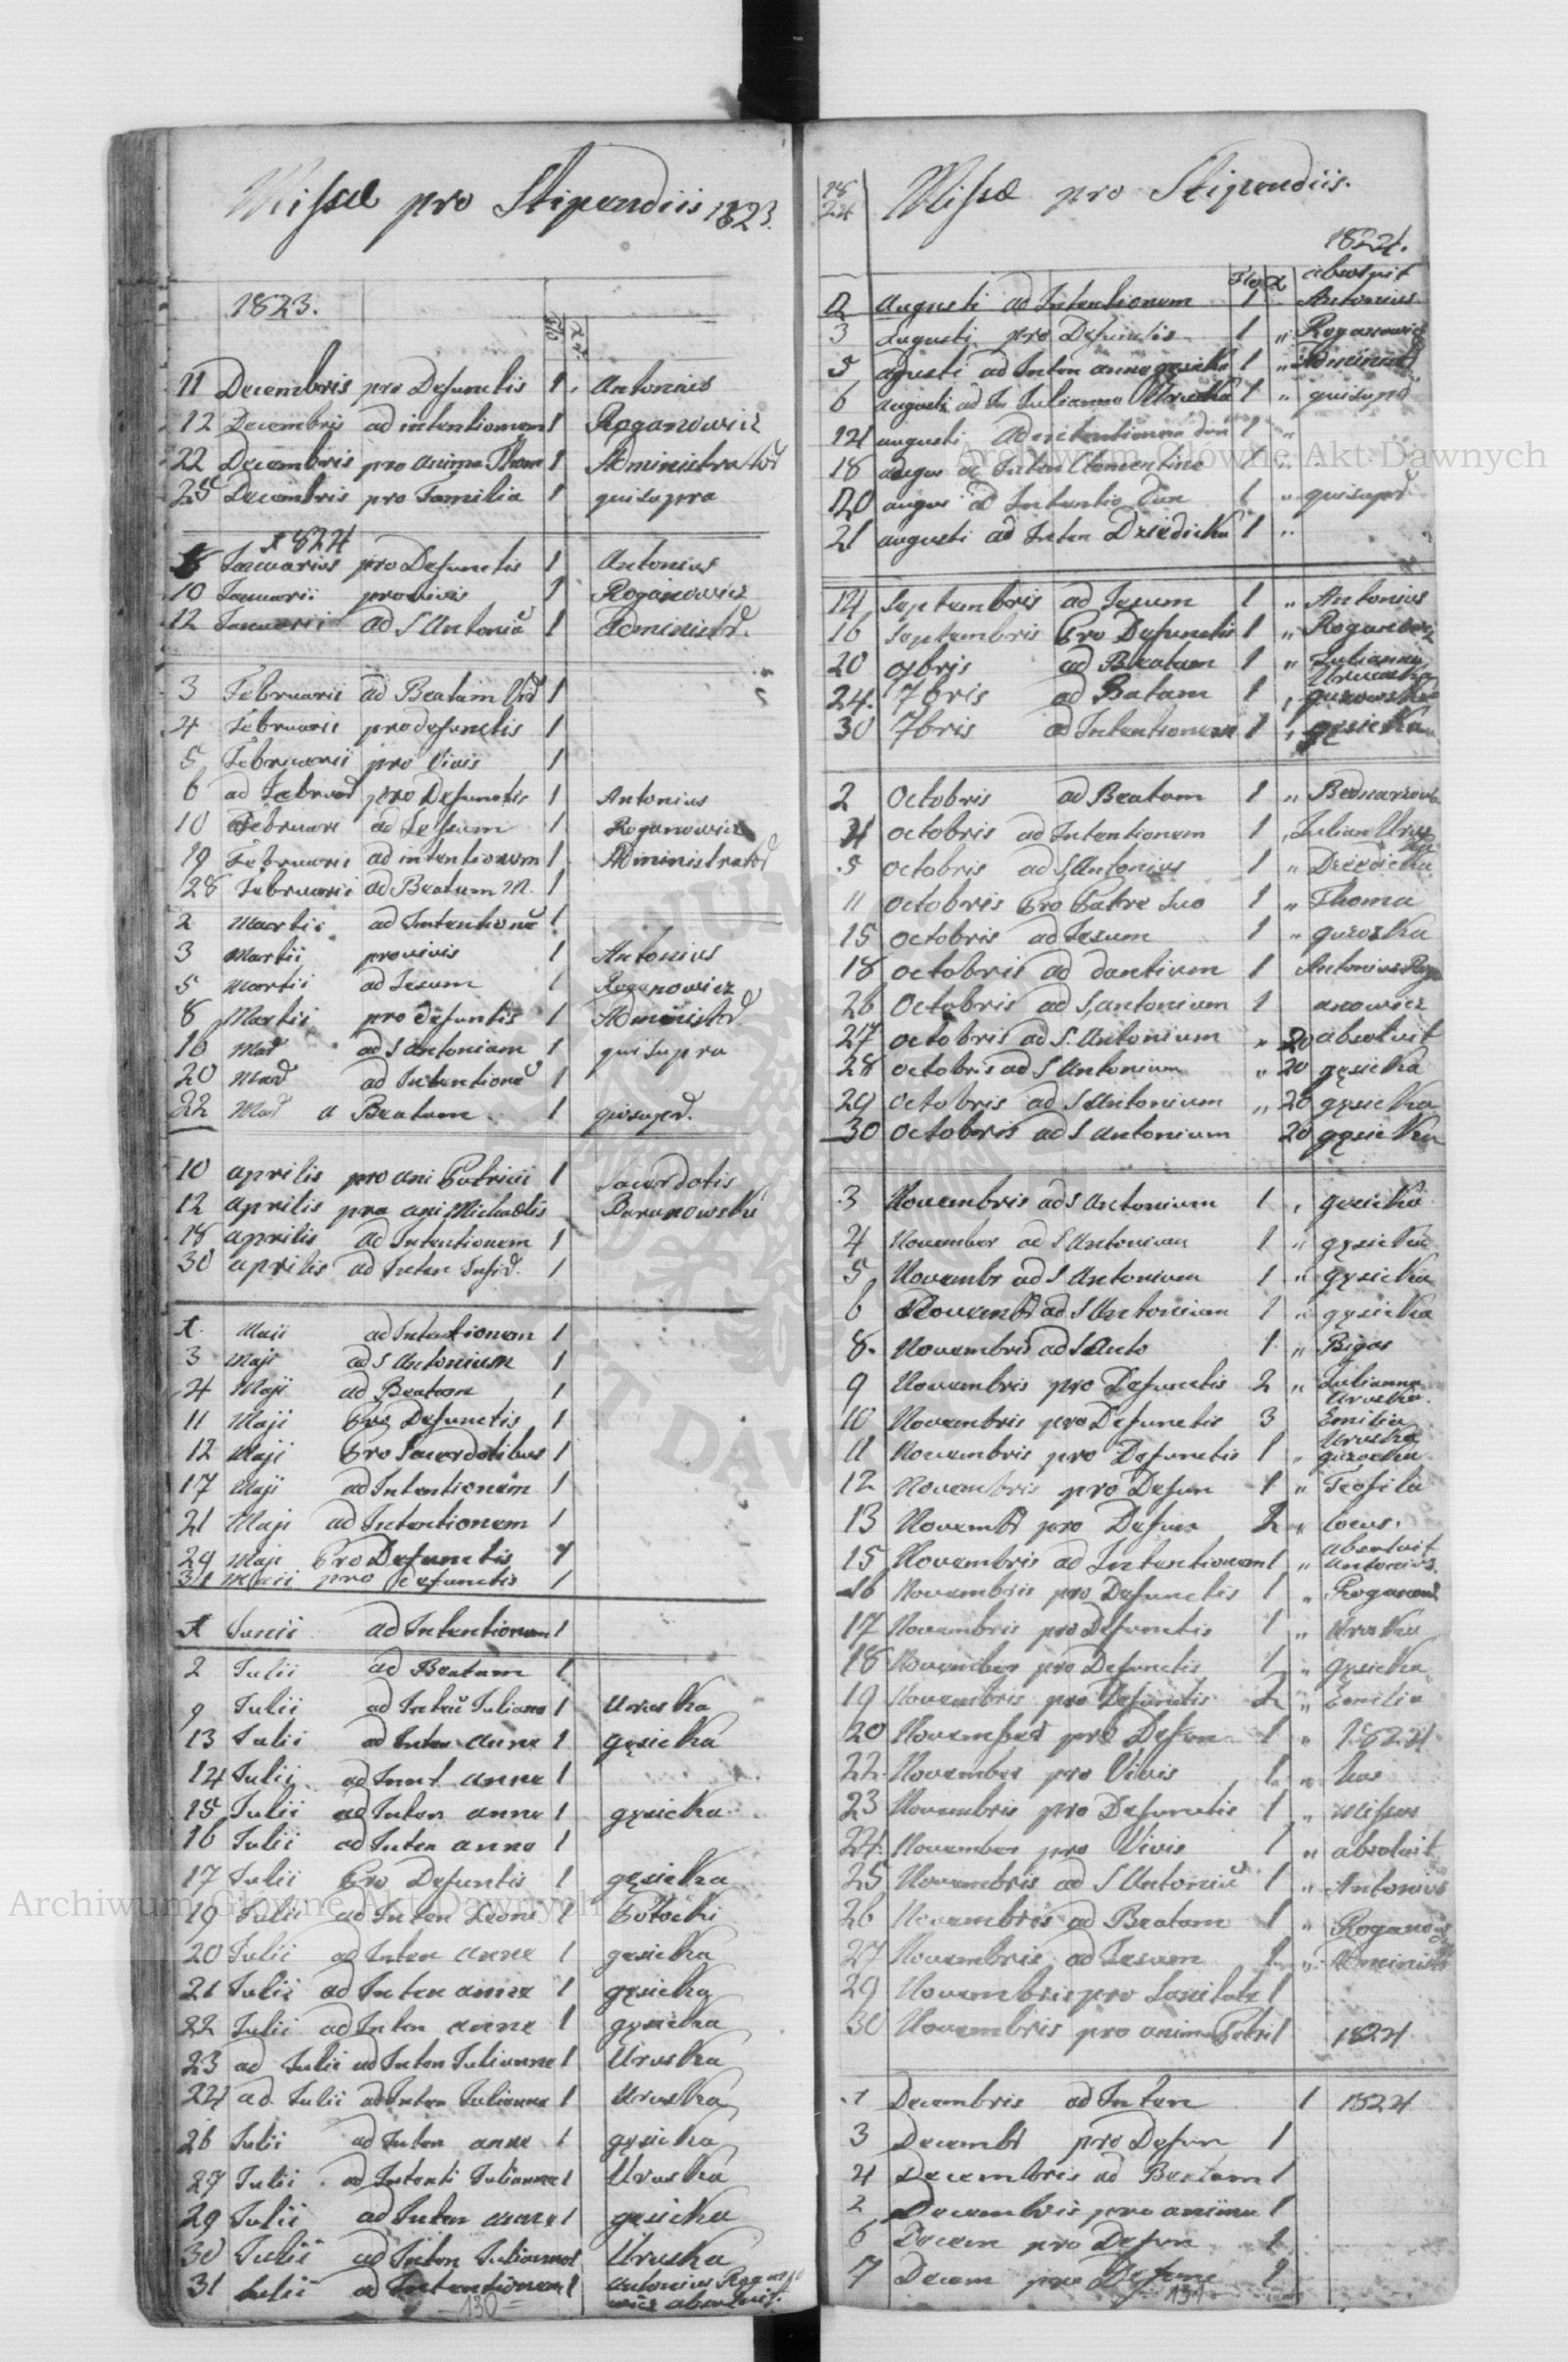 Missae pro Stipendiis 1823.
1823.
11 Decembris pro Defunctis 1 Antonius
12 Decembris ad intentionem 1 Roganowicz
22 Decembris pro anima Thom 1 Administrator
25 Decembris pro Familia 1 qui supra
1824
Januarius pro Defunctis 1 Antonius
10 Januarii pro vivis 1 Roganowicz
12 Januarii ad S Antoniu 1 Administr.
3 Februarii ad Beatam 1
4 Februarii pro defunctis 1
5 Februarii pro Vivis 1
6 ad Februar pro Defunctis 1 Antonius
10 Februari ad Jesum 1 Roganowicz
19 Februarii ad intentionem 1 Administrator
28 Februarii ad Beatam M. 1
2 Martii ad Intentione 1
3 Martii pro vivis 1 Antonius
5 Martii ad Jesum 1 Roganowicz
8 Martis pro defuntis 1 Administr
16 Mar ad S Antoniam 1 qui supra
20 Mar ad Intentione 1
22 Mar a Beatam 1 qui supr.
10 aprilis pro ani Patricii 1 Sacerdotis
12 aprilis pro ani Michaelis Baranowski
18 aprilis ad Intentionem 1
30 aprilis ad Inten 1
1. Maji ad Intentionem 1
3 Maji ad S Antonium 1
4 Maji ad Beatam 1
11 Maji Pro Defunctis 1
12 Maji Pro Sacerdotibus 1
17 Maji ad Intentionem 1
21 Maji ad Intentionem 1
29 Maji Pro Defunctis 1
31 Maii pro defunctis 1
1 Junii ad Intentionem 1
2 Julii ad Beatam 1
9 Julii ad Inten Juliana 1 Uruska
13 Julii ad Inten Anne 1 gęsicka
14 Julii ad Innt anne 1
15 Julii ad Inten anne 1 gęsicka
16 Julii ad Inten anne 1
17 Julii Pro Defuntis 1 gęsicka
19 Julii ad Inten Leone 1 Potocki
20 Julii ad Inten anne 1 gęsicka
21 Julii ad Inten anne 1 gęsicka
22 Julii ad Inten anne 1 gęsicka
23 ad Julii ad Inten Julianne 1 Uruska
24 ad Julii ad Inten Julianne 1 Uruska
26 Julii ad Inten anne 1 gęsicka
27 Julii ad Intenti Julianne 1 Uruska
29 Julii ad Inten anne 1 gęsicka
30 Julii ad Inten Julianne 1 Uruska
31 Julii ad Intentionem 1 Antonius Rogano
wicz absolvit.
130
18
24
Missae pro Stipendiis.
1824.
absolvit
2 Augusti ad Intentionem 1 Antonius
3 Augusti pro Defunctis 1 " Roganowicz
5 agusti ad Inten anne gęsicka 1 " Administr
6 augusti ad In Julianna Uruska 1 " qui supr
14 augusti Ad intentionem 1 "
18 augus ad Inten Clementine 1 "
20 augus ad Intentio Dan 1 " qui supr
21 augusti ad Inten Dziedzicka 1 "
14 Septembris ad Jesum 1 " Antonius
16 Septembris Pro Defunctis 1 " Roganowicz
20 7bris ad Beatam 1 " Julianna
Uruska
24. 7bris ad Batam 1
30 7bris ad Intentionem 1 " gęsicka
2 Octobris ad Beatam 1 "
4 octobris ad Intentionem 1 Julian Urus
ka
5 octobris ad S Antonius 1 " Dziedzicka
11 octobris Pro Patre Suo 1 " Thoma
15 octobris ad Jesum 1 "
18 octobris ad dantium 1 Antonius Rog
26 Octobris ad S, antonium 1 anowicz
27 octobris ad S. Antonium " 20 absolvit
28 octobris ad S Antonium " 20 gęsicka
29 Octobris ad S Antonium " 20 gęsicka
30 octobris ad S Antonium 20 gęsicka
3 Novembris ad S Antonium 1 gęsicka
4 November ad S Antonium 1 " gęsicka
5 Novembr ad S Antonium 1 " gęsicka
6 Novemb ad S Antonium 1 " gęsicka
8. Novembris ad S Anto 1 " Bigos
9 Novembris pro Defunctis 2 " Julianna
Uruska.
10 Novembris pro Defunctis 3 Emilia
Uruska
11 Novembris pro Defunctis 1
12 Novembris pro Defun 1 " Teofila
13 Novemb pro Defun 2 " locus.
absolvit
15 Novembris ad Intentionem 1 " Antonius
16 Novembris pro Defunctis 1 " Roganow
17 Novembris pro Defunctis 1 " Uruska
18 November pro Defunctis 1 " gęsicka
19 Novembris pro Defunctis 2 " Emilia
20 November pro Defun 1 " 1824
22 November pro Vivis 1 " has
23 Novembris pro Defunctis 1 " missas
24. November pro Vivis 1 " absolvit
25 Novembris ad S Antoniu 1 " Antonius
26 Novembris ad Beatam 1 " Roganowicz
27 Novembris ad Jesum 1 " Administr
29 Novembris pro Sanitate 1
30 Novembris pro anima Petri 1 1824
1 Decembris ad Inten 1 1824
3 Decemb pro Defun 1
4 Decembris ad Beatam 1
2 Decembris pro anima 1
6 Decem pro Defun 1
7 Decem pro Defunc 1
131
Archiwum Główne Akt Dawnych
Archiwum Główne Akt Dawnych